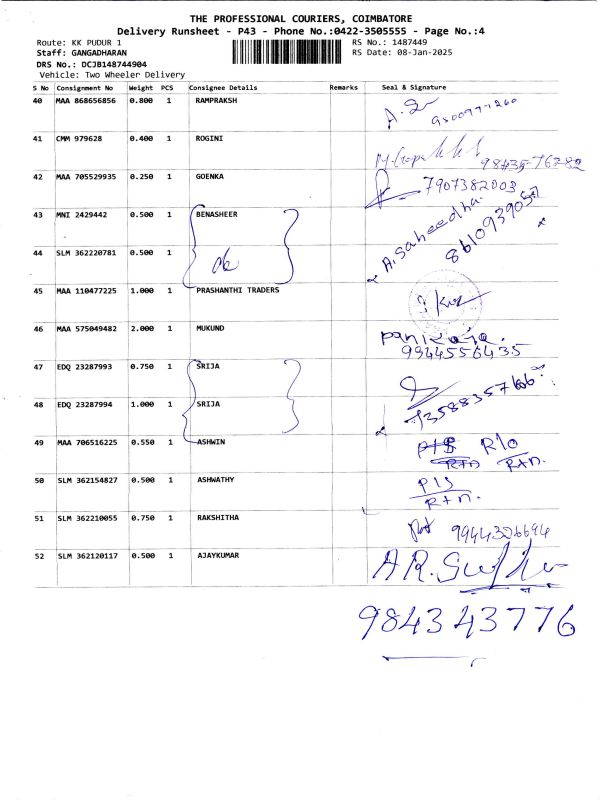 THE PROFESSIONAL COURIERS, COIMBATORE
Delivery Runsheet - P43 - Phone No.:0422-3505555 - Page No.:4
Route: KK PUDUR 1 RS No.: 1487449
Staff: GANGADHARAN RS Date: 08-Jan-2025
DRS No.: DCJB148744904
Vehicle: Two Wheeler Delivery
S No Consignment No Weight PCS Consignee Details Remarks Seal & Signature
40 MAA 868656856 0.800 1 RAMPRAKSH
41 CMM 979628 0.400 1 ROGINI 98435-76282
42 MAA 705529935 0.250 1 GOENKA 7907382003
43 MNI 2429442 0.500 1 BENASHEER A. Saheedha. 8610939057
44 SLM 362220781 0.500 1
45 MAA 110477225 1.000 1 PRASHANTHI TRADERS
46 MAA 575049482 2.000 1 MUKUND
9944556435
47 EDQ 23287993 0.750 1 SRIJA
48 EDQ 23287994 1.000 1 SRIJA
49 MAA 706516225 0.550 1 ASHWIN R/o
Rtn.
50 SLM 362154827 0.500 1 ASHWATHY P/S
Rtn.
51 SLM 362210055 0.750 1 RAKSHITHA 9944326694
52 SLM 362120117 0.500 1 AJAYKUMAR
984343776